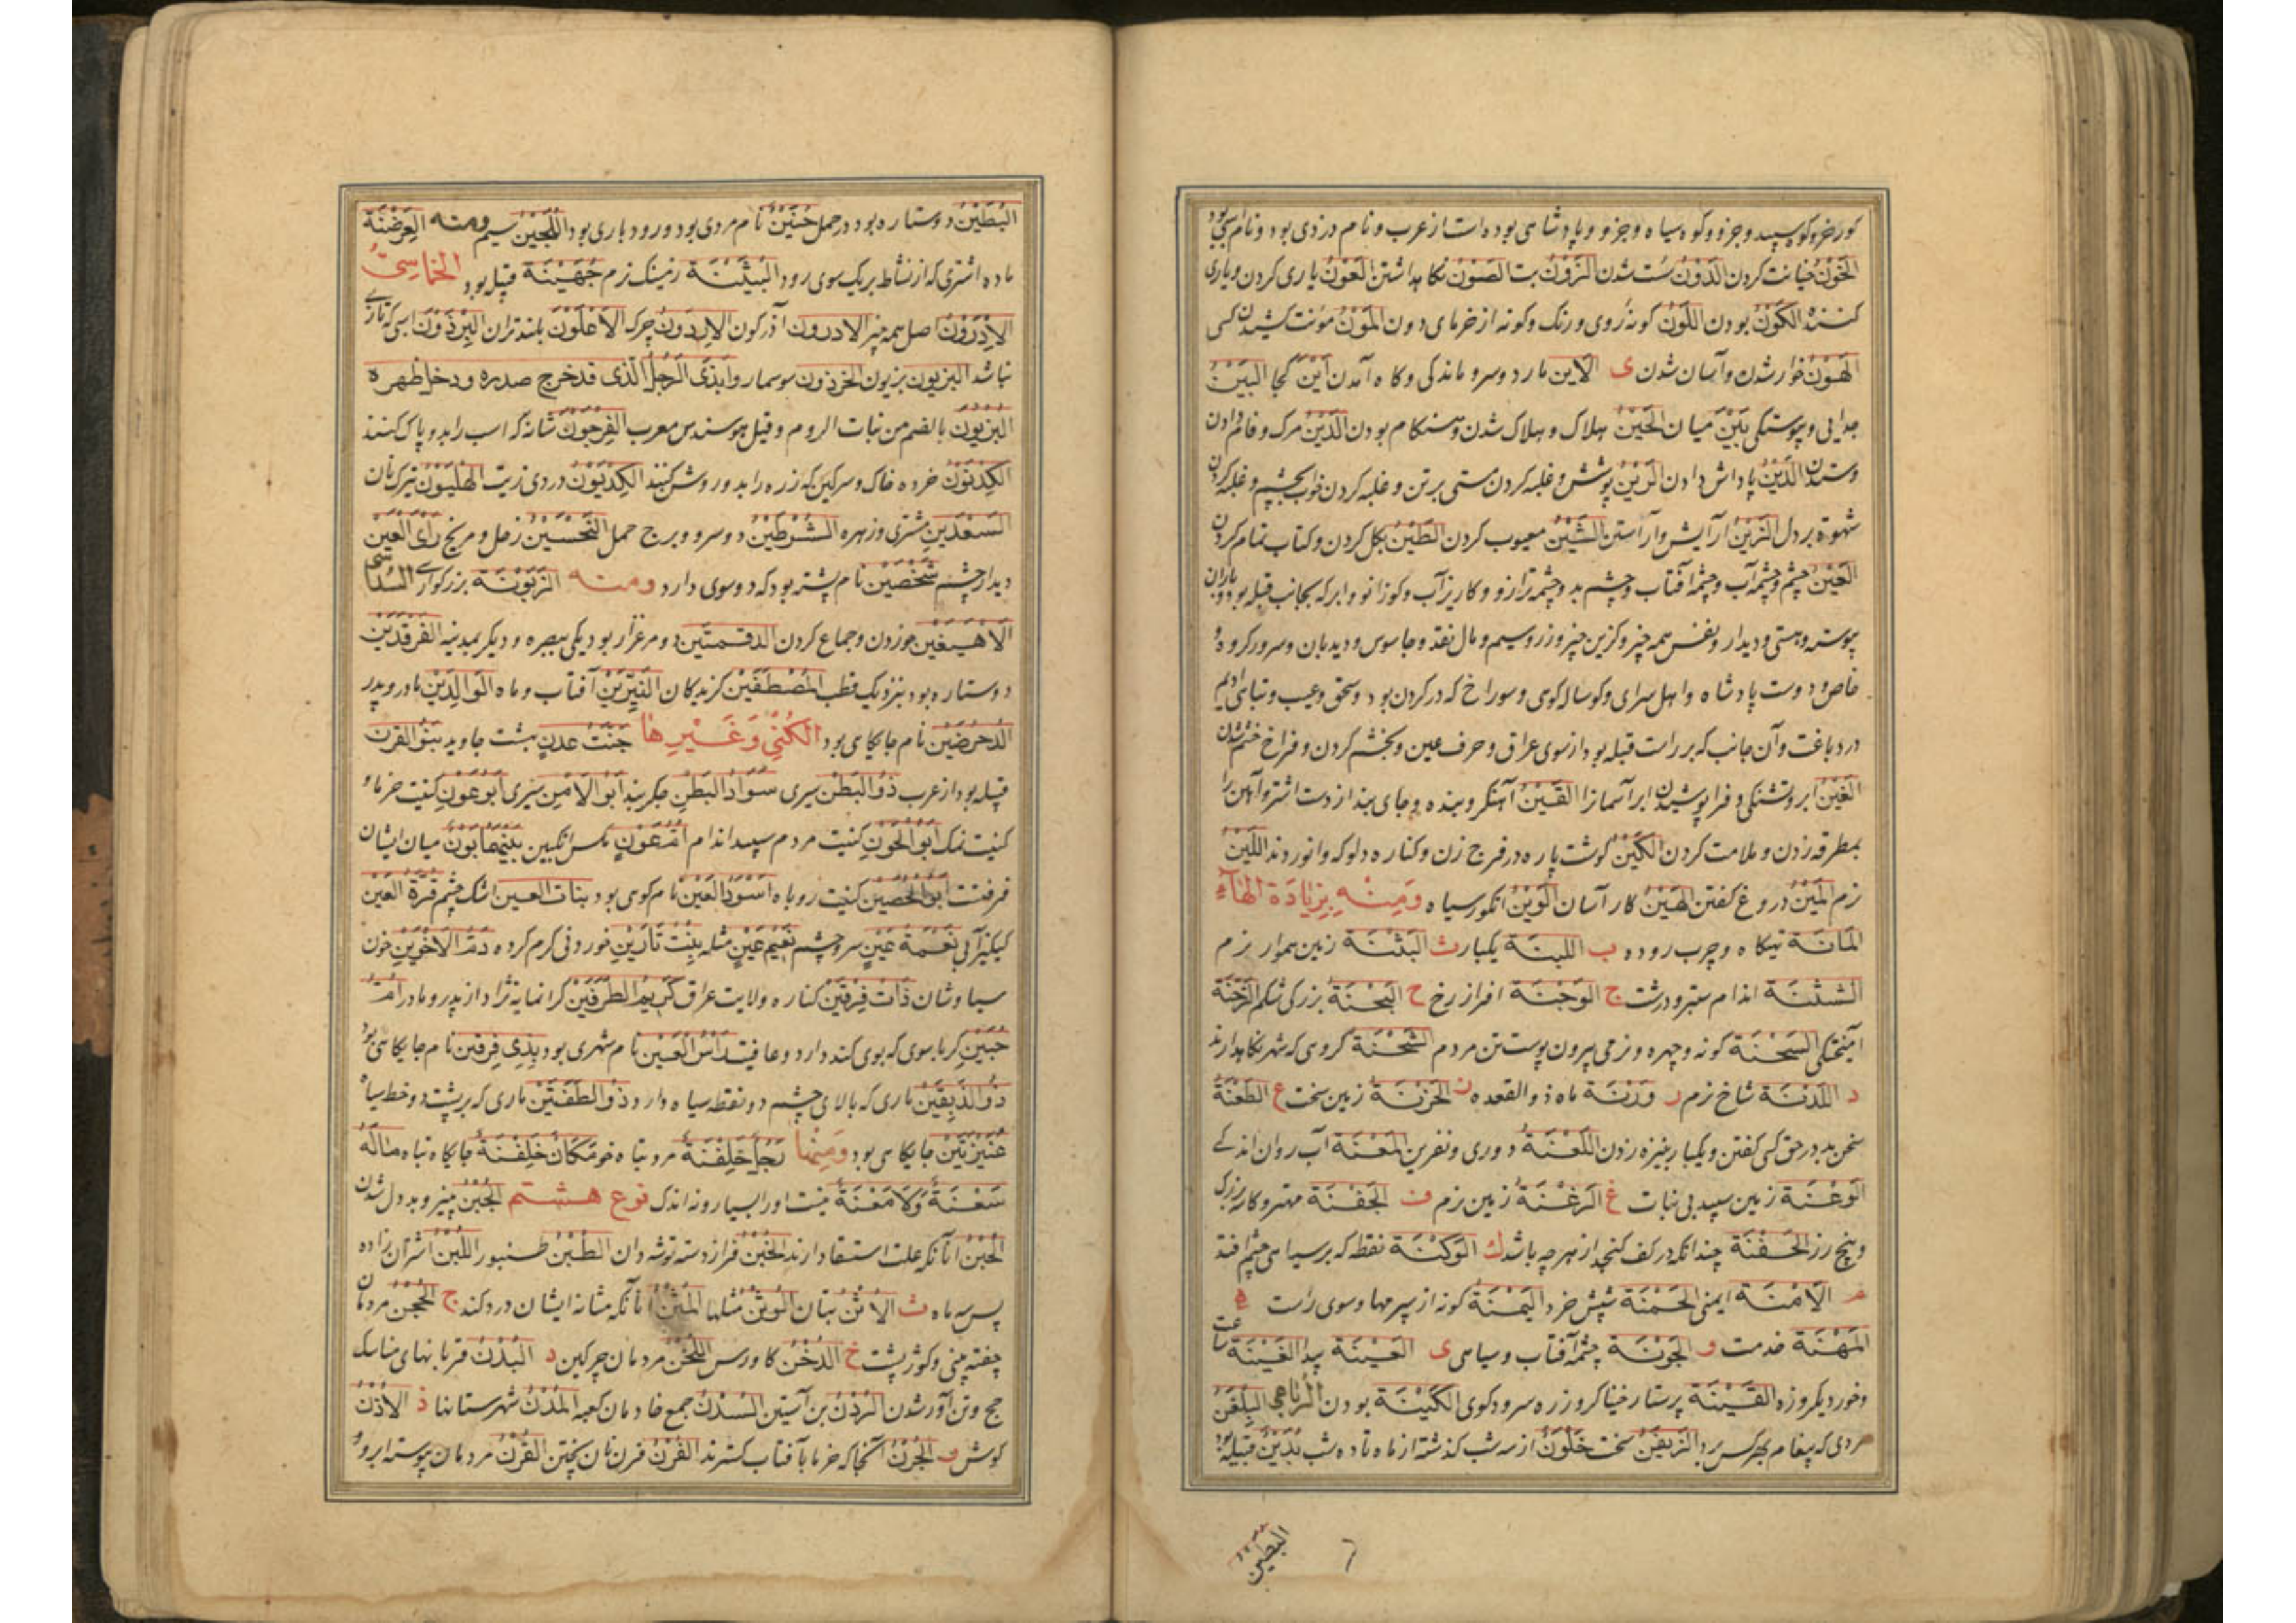 کور خر و کوه سپید و جز و و کوه سیاه و جز و و پادشاهی بوده است از عرب و نام در زدی بود و نام اسبی بود
الخَوْنُ خیانت کردن الدَوْنُ سُست شدن الزَوْنُ بت الصَوْنُ نکاهداشتن العَوْنُ یاری کردن و یاری
کننده الکَوْنُ بودن اللَوْنُ کونهٔ روی و رنک و کونه از خرمای دون المَوْنُ مؤنت کشیدن کسی
الهَوْنُ خوار شدن و آسان شدن ی الاَین مار د و سر و ماندکی و کاه آمدن اَیْنَ کجا البَیْنُ
جدایی و پیوستکی بَیْنَ میان الحَیْنُ هلاک و هلاک شدن و هنکام بودن الدَیْنُ مرک و فام دادن
و ستدن الدَیْنُ پاداش دادن الرَیْنُ پوشش و غلبه کردن مستی بر تن و غلبه کردن خواب بچشم و غلبه کردن
شهوة بر دل الزَیْنُ آرایش و آراستن الشَیْنُ معیوب کردن الطَیْنُ بکل کردن و کتاب تمام کردن
العَیْنُ چشم و چشمهٔ آب و چشمهٔ آفتاب و چشم بد و چشمه ترازو و کاریز آب و کوز زانو و ابر که بجانب قبله بود و باران
پیوسته و هستی و دیدار و نفس همه چیز و کزین چیز و زر و سیم و مال نقد و جاسوس و دیدبان و سرور کروه و
خاص و دوست پادشاه و اهل سرای و کوساله کوهی و سوراخ که در کردن بود و سختی و عیب و تباهی ادیم
در دباغت و آن جانب که بر راست قبله بود از سوی عراق و حرف عین و بخشم کردن و فراخ چشم شدن
الغَیْنُ ابر و تشنکی و فرا پوشیدن ابر آسمانرا القَیْنُ آهنکر و بنده و جای بند از دست اشتر و آهن را
بمطرقه زدن و ملامت کردن الکَیْنُ کوشت پاره در فرج زن و کناره دلو که وانوردند اللَیْنُ
نرم المَیْنُ دروغ کفتن الهَیْنُ کار آسان الوَیْنُ انکور سیاه وَمِنْهِ بِزِیادَةِ الهَآءِ
المَانَة تهیکاه و چرب روده ب اللبنَة یکبار ث البَثْنَة زمین هموار نرم
الشَثْنَة اندام ستبر و درشت ج الوَجْنَة افراز رخ ح البَحْنَة بزرکی شکم الزَحْنَة
آمیختکی السَحْنَة کونه و چهره و نرمی بیرون پوست تن مردم الشَحْنَة کروهی که شهر نکاهدارند
د اللَدْنَة شاخ نرم ر وَرْنَة ماه ذو القعده ز الحَزْنَة زمین سخت ع الطَعْنَة
سخن بد در حق کسی کفتن و یکبار بنیزه زدن اللَعْنَة دوری و نفرین المَعْنَة آب روان اندکی
الوَعْنَة زمین سپید بی نبات غ الرَغْنَة زمین نرم ف الجَفْنَة مهتر و کاسه بزرک
و بیخ رز الحَفْنَة چندانکه در کف کنجد از هر چه باشد ك الوَکْنَة نقطه که بر سیاهی چشم افتد
م الاَمْنَة ایمنی الحَمْنَة شپش خرد الیَمْنَة کونه از سپرمها و سوی راست ه
المَهْنَة خدمت و الجَوْنَة چشمهٔ آفتاب و سیاهی ی العَیْنَة پیدا الغَیْنَة
و خور دیکروزه القَیْنَة پرستار خنیاکر و زره سرود کوی الکَیْنَة بودن الرُباعی البِلَغْن
مردی که پیغام بهر کس برد الزَیفَن سخت خَلَوْنَ از سه شب کذشته از ماه تا ده شب بُدَیْنُ قبیله
البُطَیْنُ
البُطَیْنُ دو ستاره بود در حمل حُنَیْنٌ نام مردی بود و رودباری بود اللُجَیْنُ سیم ومنه العِرَضْنَة
ماده اشتری که از نشاط بر یک سوی رود البُثَیْنَة زمینک نرم جُهَیْنَة قبیله بود الخماسیُّ
الاِدرَوْنُ اصل همه چیز الادریون آذرکون الاِردَوْنُ چرک الاَعْلَوْنَ بلندتران البِرْذَوْنَ اسبی که تازی
نباشد البزیون بزیون الخرذون سوسمار وابذی الرجل الذی قد خرج صدره ودخل ظهره
البُزیون بالضم من نبات الروم وقیل هو سندس معرب الفِرجَوْنُ شانه که اسب را بدو پاک کنند
الکِدْیَوْنُ خرده خاک و سرکین که زره را بدو روشن کنند الکِدْیَوْنُ دردی زیت الهِلْیَوْنُ ترکمان
السَعْدَین مشتری و زهره الشَرْطَیْن دو سروِ برج حمل النَحْسَیْن زحل و مریخ رَأی العَین
دیدار چشم شَخْصَین نام پشته بود که دو سوی دارد ومنه الزَبُونَة بزرکواری السُداسی
الاَهیَغَین خوردن و جماع کردن الدقمتین دو مرغزار بود یکی ببصره و دیکر بمدینه الفَرقَدَین
دو ستاره بود بنزدیک قطب المُصْطَفَیْنَ کزیدکان النَیِّرَیْن آفتاب و ماه الوَالِدَیْن مادر و پدر
الدحرضین نام جایکاهی بود الکُنیٰ وَغَیْرِها جَنَّتُ عدنٍ بهشت جاوید بَنُو القرن
قبیله بود از عرب ذُو البَطْن سیری سَوَادُ البَطنِ جکربند اَبُو الاَمْنِ سیری اَبُو عَوْنٍ کنیت خرما و
کنیت نمک اَبُو الجَونِ کنیت مردم سپید اندام اُمُّ عَوْنٍ مکس انکبین بَینَهُمَا بَوْنٌ میان ایشان
فرقتست اَبو الحُصَیْن کنیت روباه اَسْوَدُ العَین نام کوهی بود بنات العین اشک چشم قُرَّةُ العَین
کیکیز آبی نَعْمَةُ عَیْنٍ سر و چشم نَعِیْمُ عَیْنٍ مثله بِنْتُ نَارَیْنِ خوردنی کرم کرده دَمُ الاَخَوَیْنِ خون
سیاوشان ذَاتُ فِرقَیْن کناره ولایت عراق کَرِیْمُ الطَرَفَیْن کرانمایه نژاد از پدر و مادر اُمُّ
حُبَیْنٍ کرباسوی که بوی کند دارد و عافیت رَاْسُ العَیْن نام شهری بود بِذِی فِرقَین نام جایکاهی بود
ذُو الذَبِیقَیْن ماری که بالای چشم دو نقطه سیاه دارد ذُو الطُفَّتَیْن ماری که بر پشت دو خط سیاه
عُنَیزَتَیْن جایکاهی بود وَمِنْها رَجُلٌ خِلَفْنَة مرد تباه خو مَکَانٌ خَلِفْنَة جایکاه تباه مَالَهُ
سَعْنَةٌ وَلَا مَعْنَةٌ نیست او را بسیار و نه اندک نوع هشتم الجُبْنُ پنیر و بددل شدن
الحُبْنُ آنانکه علت استسقا دارند الخُبْنُ فراز دسته توشه دان الطُبْنُ طنبور اللُبْنُ اشتران زاده
پس سه ماه ث الاُثْنُ بتان الوُثْنُ مثلها المُثْنُ آنانکه مثانه ایشان درد کند ج الحُجْنُ مردمان
چفته بینی و کوز پشت خ الدُخْنُ کاورس اللُخْنُ مردمان چرکین د البُدْنُ قربانیهای مناسک
حج و تن آور شدن الرُدْنُ بن آستین السُدْنُ جمع خادمان کعبه المُدْنُ شهرستانها ذ الاُذْنُ
کوش ر الجُرْنُ آنجا که خرما بآفتاب کسترند الفُرْنُ فرن نان پختن القُرْنُ مردمان پیوسته ابرو و